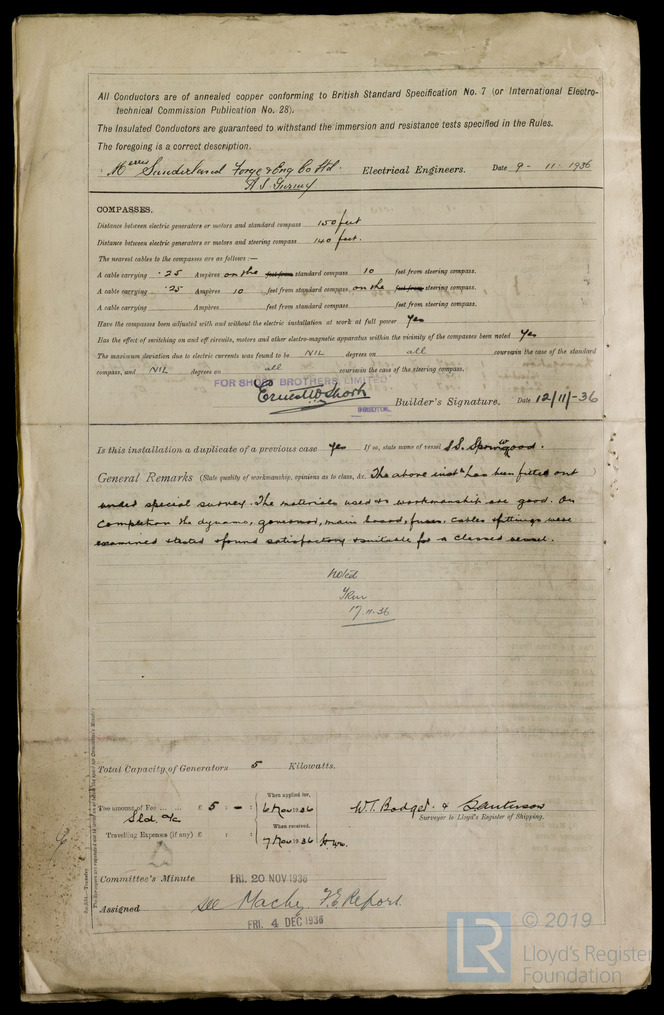 All Conductors are of annealed copper conforming to British Standard Specification No. 7 (or International Electro-
technical Commission Publication No. 28).
The Insulated Conductors are guaranteed to withstand the immersion and resistance tests specified in the Rules.
The foregoing is a correct description.
Messrs Sunderland Forge & Eng Co Ltd. Electrical Engineers. Date 9 - 11 - 1936
COMPASSES.
Distance between electric generators or motors and standard compass 150 feet
Distance between electric generators or motors and steering compass 140 feet.
The nearest cables to the compasses are as follows:—
A cable carrying .25 Ampères on the feet from standard compass 10 feet from steering compass.
A cable carrying .25 Ampères 10 feet from standard compass on the feet from steering compass.
A cable carrying Ampères feet from standard compass feet from steering compass.
Have the compasses been adjusted with and without the electric installation at work at full power Yes
Has the effect of switching on and off circuits, motors and other electro-magnetic apparatus within the vicinity of the compasses been noted Yes
The maximum deviation due to electric currents was found to be NIL degrees on all course in the case of the standard
compass, and NIL degrees on all course in the case of the steering compass.
FOR SHORT BROTHERS, LIMITED
Ernest W Short Builder's Signature. Date 12/11/-36
Is this installation a duplicate of a previous case Yes If so, state name of vessel S.S. Springwood.
General Remarks (State quality of workmanship, opinions as to class, &c. The above instn has been fitted out )
under special survey. The materials used & workmanship are good. On
completion the dynamo, governor, main board, fuses, cables & fittings were
examined & tested & found satisfactory & suitable for a classed vessel.
Noted
17.11.36
Total Capacity of Generators 5 Kilowatts.
When applied for,
The amount of Fee ... ... £ 5 : - : 6 Nov 1936 W.T. Badger &
Sld. a/c Surveyor to Lloyd's Register of Shipping.
When received,
Travelling Expenses (if any) £ : : 7 Nov 1936
Committee's Minute FRI. 20 NOV 1936
Assigned see Machy F.E. Report.
FRI. 4 DEC 1936
LR © 2019
Lloyd's Register
Foundation